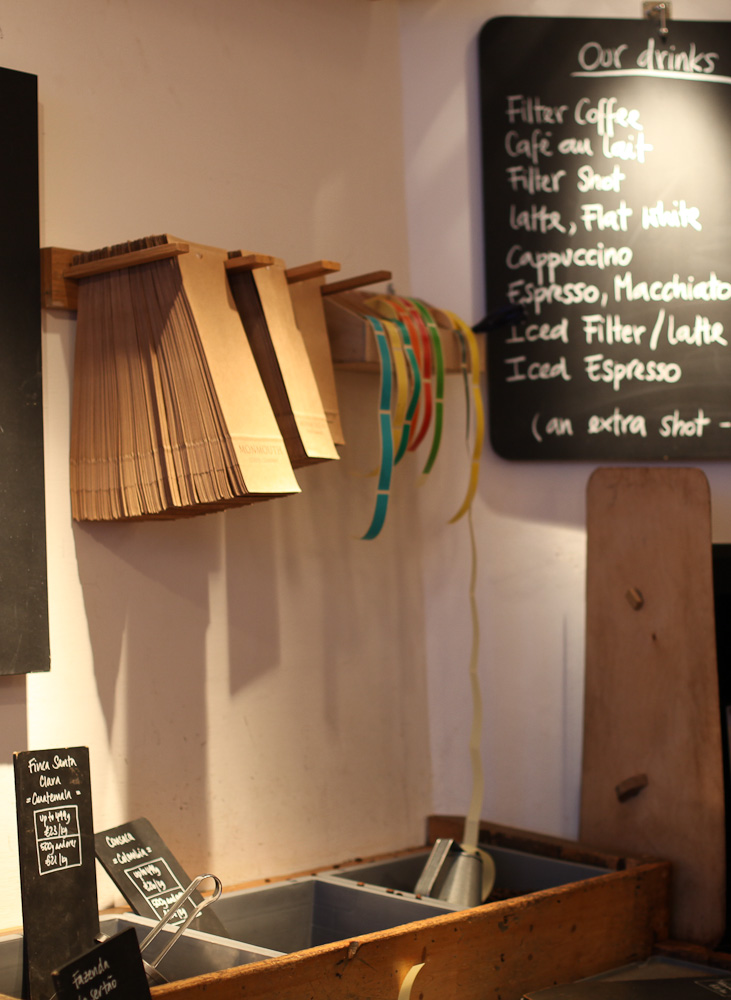 Our drinks
Filter Coffee
Café au lait
Filter Shot
latte, Flat white
Cappuccino
Espresso, Macchiato
Iced Filter / latte
Iced Espresso
(an extra shot -
MONMOUTH
Finca Santa
Clara
= Guatemala =
up to 499g
£23/kg
500g and over
£21/kg
= Colombia =
up to 499g
500g and over
Fazenda
sertão